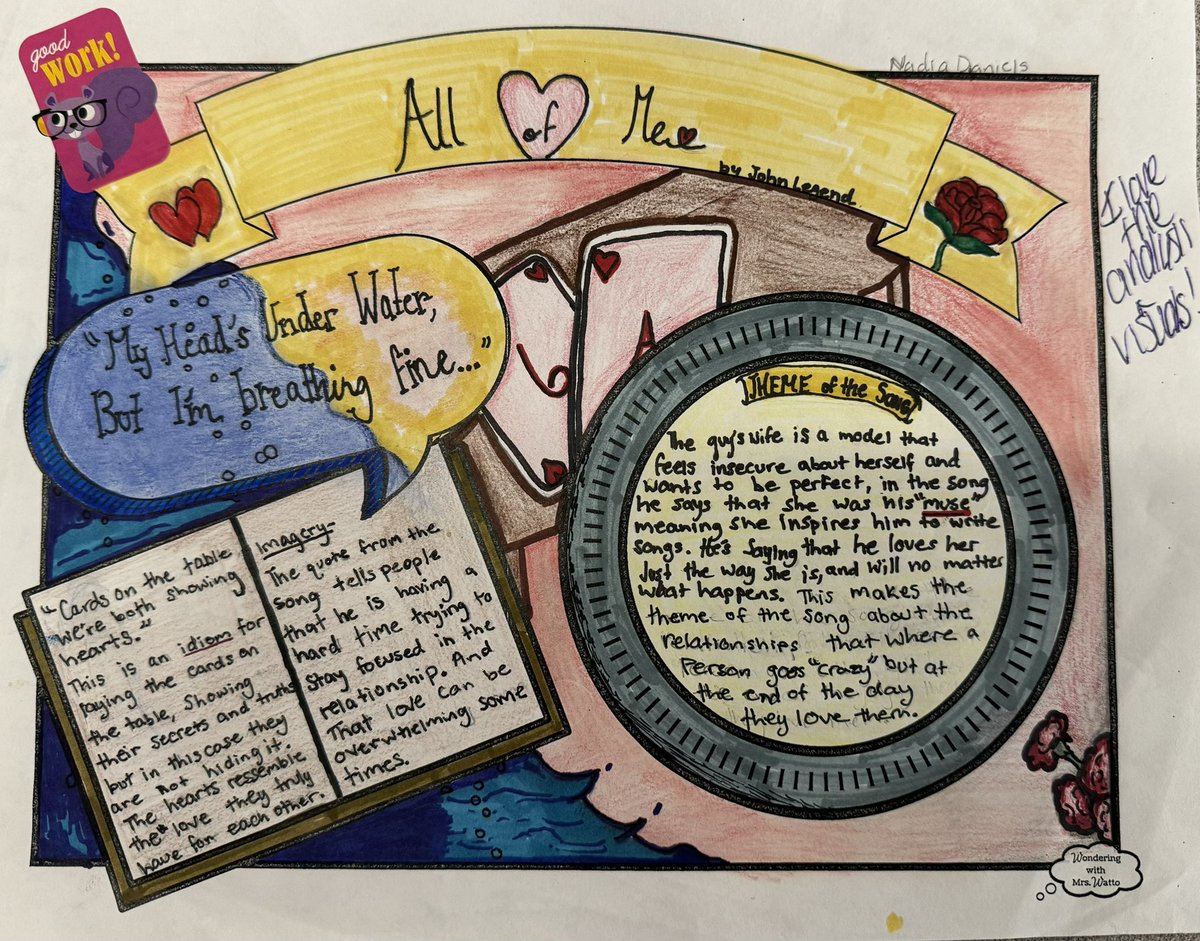 good
work!
Nadia Daniels
All of Me
by John Legend
I love
the
visuals!
"My Head's Under Water,
But I'm breathing fine..."
"Cards on the table
we're both showing
hearts."
This is an idiom for
laying the cards on
the table, showing
their secrets and truths
but in this case they
are not hiding it.
The hearts ressemble
the "love they truly
have for each other.
Imagery-
The quote from the
song tells people
that he is having a
hard time trying to
stay focused in the
relationship. And
That love can be
overwhelming some
times.
THEME of the Song
The guy's wife is a model that
feels insecure about herself and
wants to be perfect, in the song
he says that she was his "muse"
meaning she inspires him to write
songs. He's saying that he loves her
Just the way she is, and will no matter
what happens. This makes the
theme of the song about the
relationships that where a
Person goes "crazy" but at
the end of the day
they love them.
A
Wondering
with
Mrs. Watto